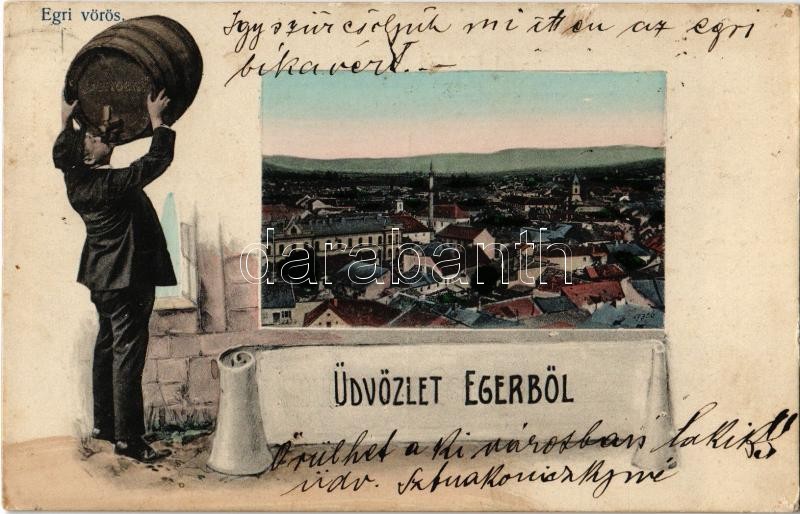 Egri vörös.
Igy szürcsöljük mi itten az egri
bikavért.—
darabanth
ÜDVÖZLET EGERBŐL
Örülhet a ki városban lakik!!
üdv. Sztnakoniczkyné